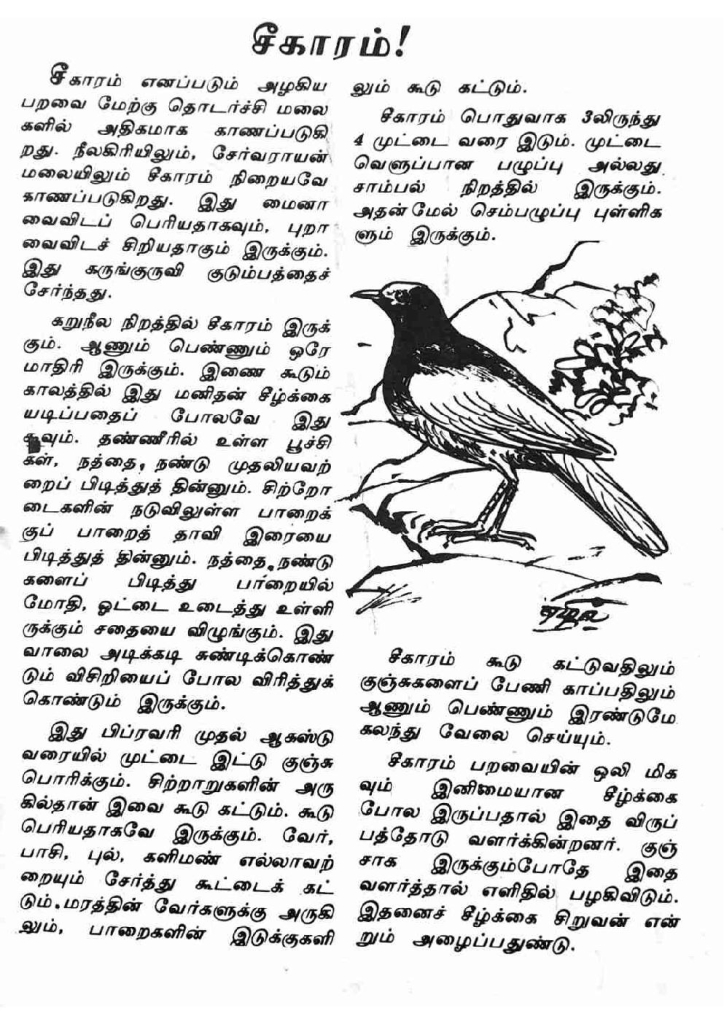 சீகாரம்!
சீகாரம் எனப்படும் அழகிய
பறவை மேற்கு தொடர்ச்சி மலை
களில் அதிகமாக காணப்படுகி
றது. நீலகிரியிலும், சேர்வராயன்
மலையிலும் சீகாரம் நிறையவே
காணப்படுகிறது. இது மைனா
வைவிடப் பெரியதாகவும், புறா
வைவிடச் சிறியதாகும் இருக்கும்.
இது கருங்குருவி குடும்பத்தைச்
சேர்ந்தது.
கறுநீல நிறத்தில் சீகாரம் இருக்
கும். ஆணும் பெண்ணும் ஒரே
மாதிரி இருக்கும். இணை கூடும்
காலத்தில் இது மனிதன் சீழ்க்கை
யடிப்பதைப் போலவே இது
கூவும். தண்ணீரில் உள்ள பூச்சி
கள், நத்தை, நண்டு முதலியவற்
றைப் பிடித்துத் தின்னும். சிற்றோ
டைகளின் நடுவிலுள்ள பாறைக்
குப் பாறைத் தாவி இரையை
பிடித்துத் தின்னும். நத்தை, நண்டு
களைப் பிடித்து பாறையில்
மோதி, ஓட்டை உடைத்து உள்ளி
ருக்கும் சதையை விழுங்கும். இது
வாலை அடிக்கடி சுண்டிக்கொண்
டும் விசிறியைப் போல விரித்துக்
கொண்டும் இருக்கும்.
இது பிப்ரவரி முதல் ஆகஸ்டு
வரையில் முட்டை இட்டு குஞ்சு
பொரிக்கும். சிற்றாறுகளின் அரு
கில்தான் இவை கூடு கட்டும். கூடு
பெரியதாகவே இருக்கும். வேர்,
பாசி, புல், களிமண் எல்லாவற்
றையும் சேர்த்து கூட்டைக் கட்
டும். மரத்தின் வேர்களுக்கு அருகி
லும், பாறைகளின் இடுக்குகளி
லும் கூடு கட்டும்.
சீகாரம் பொதுவாக 3லிருந்து
4 முட்டை வரை இடும். முட்டை
வெளுப்பான பழுப்பு அல்லது
சாம்பல் நிறத்தில் இருக்கும்.
அதன்மேல் செம்பழுப்பு புள்ளிக
ளும் இருக்கும்.
எழில்
சீகாரம் கூடு கட்டுவதிலும்
குஞ்சுகளைப் பேணி காப்பதிலும்
ஆணும் பெண்ணும் இரண்டுமே
கலந்து வேலை செய்யும்.
சீகாரம் பறவையின் ஒலி மிக
வும் இனிமையான சீழ்க்கை
போல இருப்பதால் இதை விருப்
பத்தோடு வளர்க்கின்றனர். குஞ்
சாக இருக்கும்போதே இதை
வளர்த்தால் எளிதில் பழகிவிடும்.
இதனைச் சீழ்க்கை சிறுவன் என்
றும் அழைப்பதுண்டு.